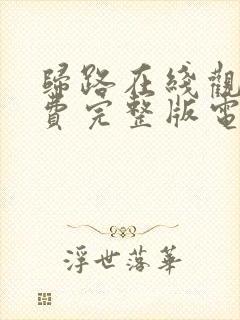 歸路在綫觀
費完整版電
浮世落華